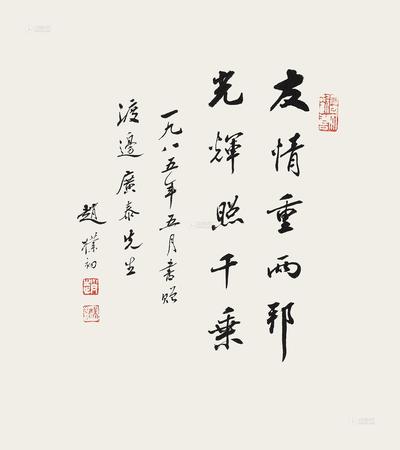 友情重兩邦
光輝照千乘
一九八五年五月書贈
渡邊廣泰先生
趙樸初